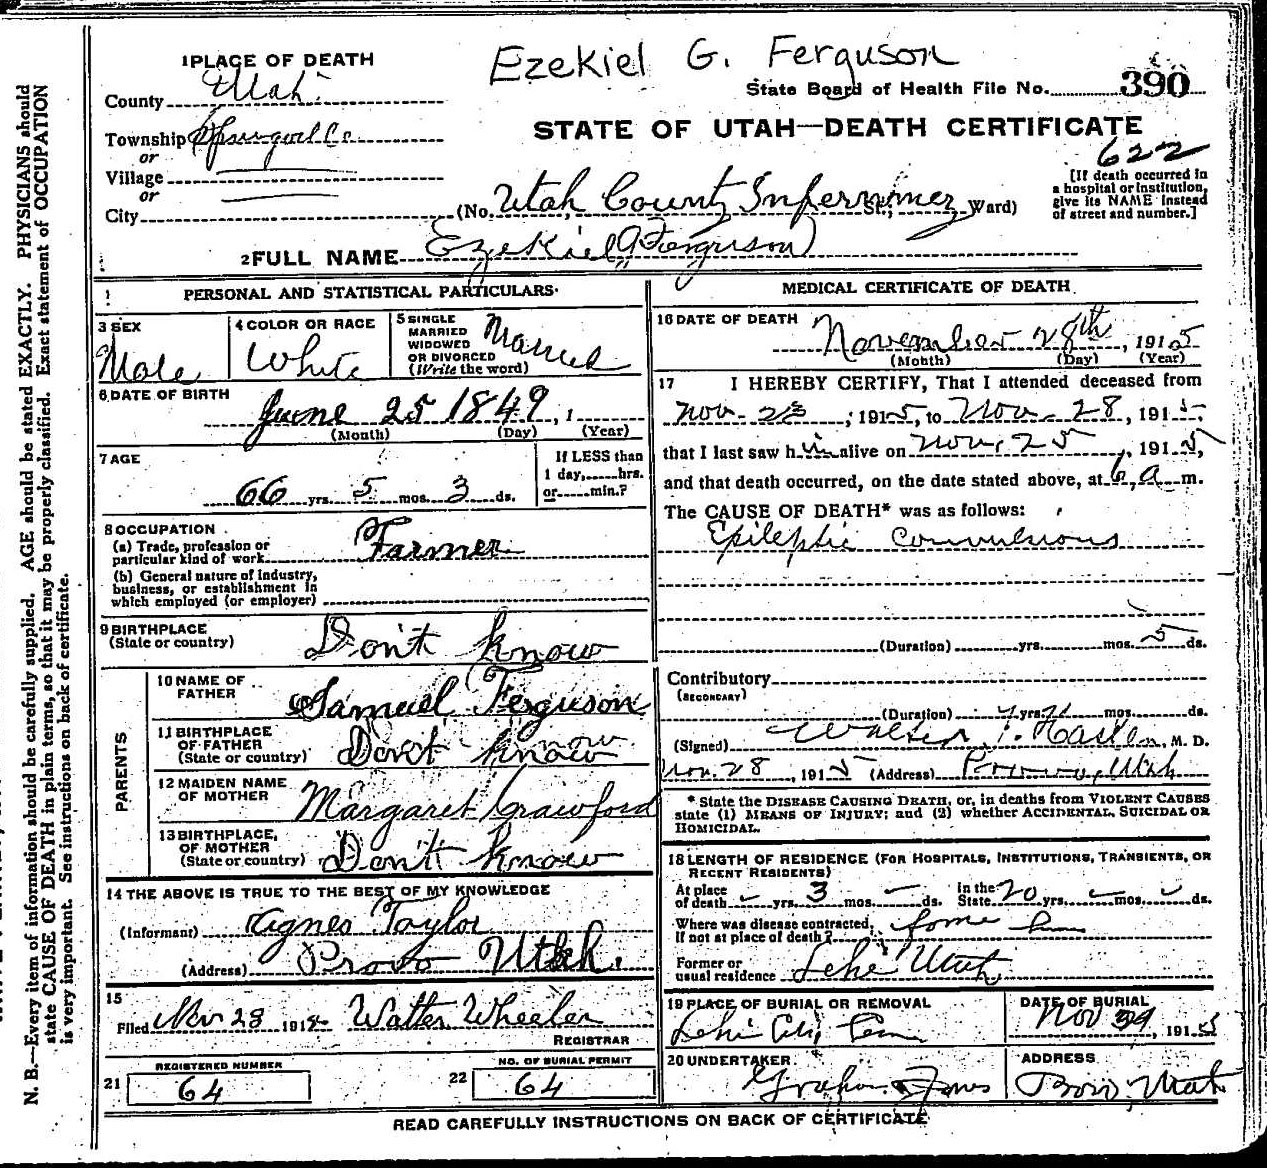 Ezekiel G. Ferguson
1 PLACE OF DEATH
County Utah
State Board of Health File No. 390
Township Springville
STATE OF UTAH—DEATH CERTIFICATE
622
or
Village
or
City
(No. Utah County Infermirey St.; Ward)
[If death occurred in
a hospital or institution,
give its NAME instead
of street and number.]
2 FULL NAME Ezekiel G Ferguson
PERSONAL AND STATISTICAL PARTICULARS
3 SEX
Male
4 COLOR OR RACE
White
5 SINGLE
MARRIED
WIDOWED
OR DIVORCED
(Write the word)
Married
6 DATE OF BIRTH
June 25 1849, 1
(Month) (Day) (Year)
7 AGE
66 yrs. 5 mos. 3 ds.
If LESS than
1 day, hrs.
or min.?
8 OCCUPATION
(a) Trade, profession or
particular kind of work Farmer
(b) General nature of industry,
business, or establishment in
which employed (or employer)
9 BIRTHPLACE
(State or country) Don't know
PARENTS
10 NAME OF
FATHER Samuel Ferguson
11 BIRTHPLACE
OF FATHER
(State or country) Don't know
12 MAIDEN NAME
OF MOTHER Margaret Crawford
13 BIRTHPLACE
OF MOTHER
(State or country) Don't know
14 THE ABOVE IS TRUE TO THE BEST OF MY KNOWLEDGE
(Informant) Agnes Taylor
(Address) Provo Utah.
15
Filed Nov 28 191 Walter Wheeler
REGISTRAR
REGISTERED NUMBER
21 64
NO. OF BURIAL PERMIT
22 64
MEDICAL CERTIFICATE OF DEATH
16 DATE OF DEATH
November 28th, 1915
(Month) (Day) (Year)
17 I HEREBY CERTIFY, That I attended deceased from
Nov. 23, 1915, to Nov. 28, 1915,
that I last saw him alive on Nov. 25, 1915,
and that death occurred, on the date stated above, at 6 a m.
The CAUSE OF DEATH* was as follows:
Epileptic Convulsions
(Duration) yrs. mos. 5 ds.
Contributory
(SECONDARY)
(Duration) yrs. mos. ds.
(Signed) Walter T. Hasler, M. D.
Nov. 28, 1915 (Address) Provo, Utah
* State the DISEASE CAUSING DEATH, or, in deaths from VIOLENT CAUSES
state (1) MEANS OF INJURY; and (2) whether ACCIDENTAL, SUICIDAL OR
HOMICIDAL.
18 LENGTH OF RESIDENCE (FOR HOSPITALS, INSTITUTIONS, TRANSIENTS, OR
RECENT RESIDENTS)
At place
of death yrs. 3 mos. ds.
In the
State 20 yrs. mos. ds.
Where was disease contracted,
If not at place of death?
Former or
usual residence Lehi Utah
19 PLACE OF BURIAL OR REMOVAL
Lehi City Cem
DATE OF BURIAL
Nov 29, 1915
20 UNDERTAKER
ADDRESS
Utah
READ CAREFULLY INSTRUCTIONS ON BACK OF CERTIFICATE
N. B.—Every item of information should be carefully supplied. AGE should be stated EXACTLY. PHYSICIANS should
state CAUSE OF DEATH in plain terms, so that it may be properly classified. Exact statement of OCCUPATION
is very important. See instructions on back of certificate.